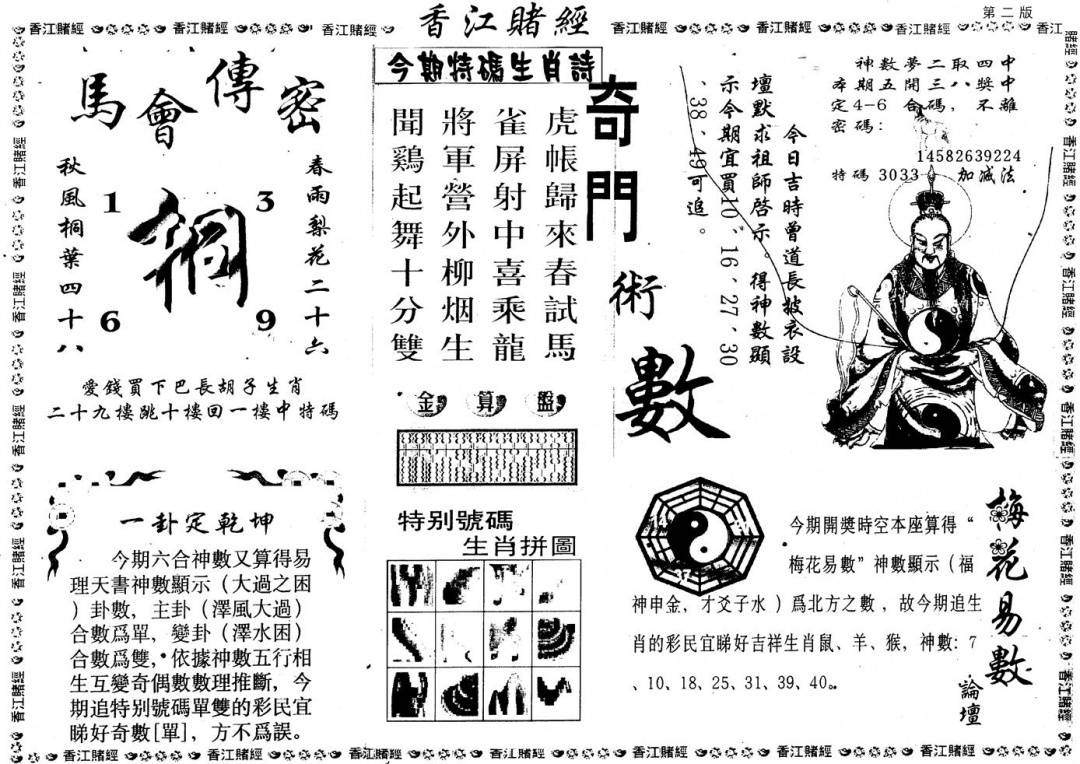 香江賭經
第二版
馬會傳密
春雨梨花二十六
秋風桐葉四十八
1
3
6
9
愛錢買下巴長胡子生肖
二十九樓跳十樓回一樓中特碼
一卦定乾坤
今期六合神數又算得易
理天書神數顯示（大過之困
）卦數，主卦（澤風大過）
合數爲單，變卦（澤水困）
合數爲雙，依據神數五行相
生互變奇偶數數理推斷，今
期追特别號碼單雙的彩民宜
睇好奇數[單]，方不爲誤。
今期特碼生肖詩
虎帳歸來春試馬
雀屏射中喜乘龍
將軍營外柳烟生
聞鷄起舞十分雙
金算盤
特别號碼
生肖拼圖
奇門術數
今日吉時曾道長披衣設
壇默求祖師啓示。得神數顯
示今期宜買10、16、27、30
、38、49可追。
神數夢二取四中
本期五開三八獎中
定4-6合碼，不離
密碼：
14582639224
特碼3033 加减法
梅花易數
論壇
今期開獎時空本座算得“
梅花易數”神數顯示（福
神申金，才爻子水）爲北方之數，故今期追生
肖的彩民宜睇好吉祥生肖鼠、羊、猴，神數：7
、10、18、25、31、39、40。